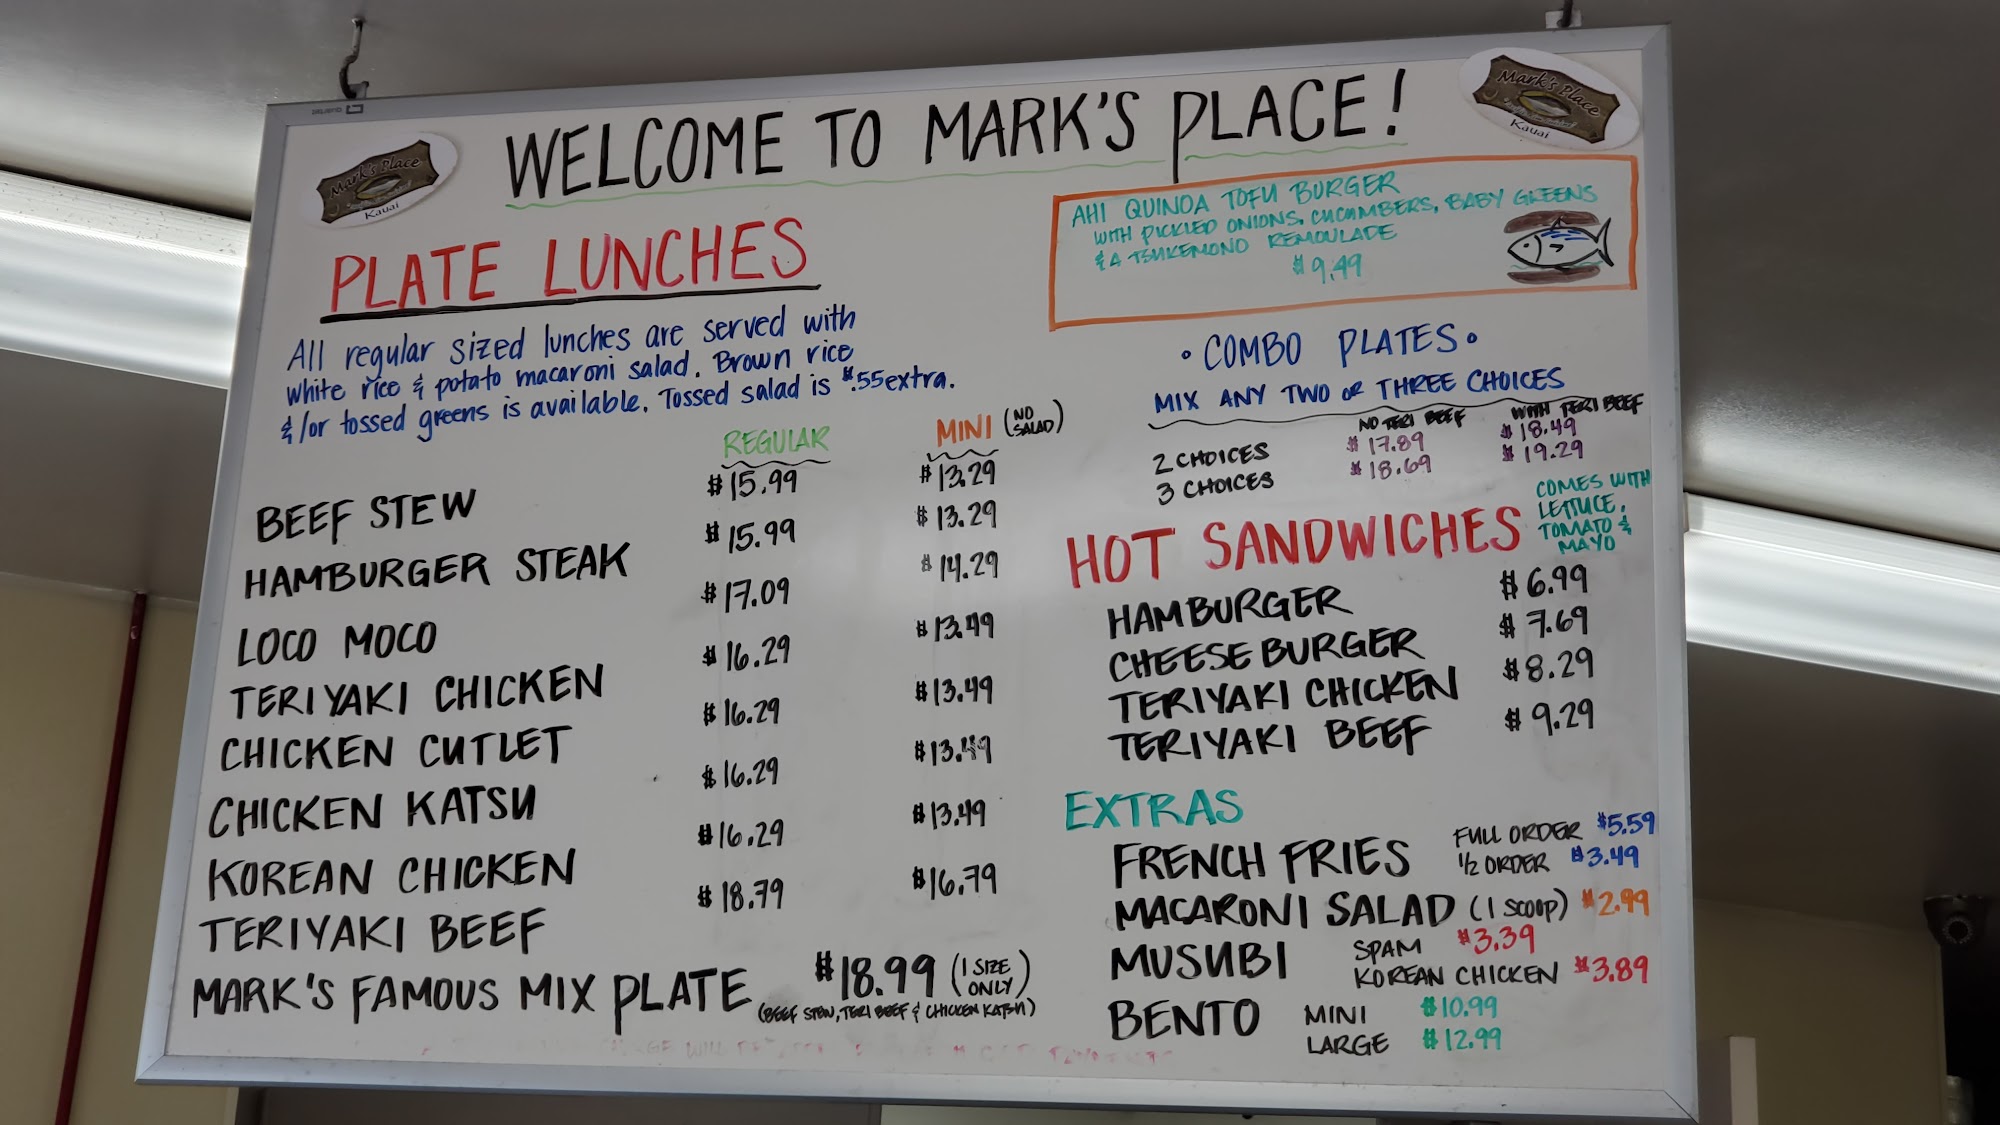 WELCOME TO MARK'S PLACE!
Mark's Place
Kauai
Mark's Place
Kauai
PLATE LUNCHES
All regular sized lunches are served with
white rice & potato macaroni salad. Brown rice
&/or tossed greens is available. Tossed salad is $.55 extra.
REGULAR MINI (NO SALAD)
BEEF STEW $15.99 $13.29
HAMBURGER STEAK $15.99 $13.29
LOCO MOCO $17.09 $14.29
TERIYAKI CHICKEN $16.29 $13.49
CHICKEN CUTLET $16.29 $13.49
CHICKEN KATSU $16.29 $13.49
KOREAN CHICKEN $16.29 $13.49
TERIYAKI BEEF $18.79 $16.79
MARK'S FAMOUS MIX PLATE $18.99 (1 SIZE ONLY)
(BEEF STEW, TERI BEEF & CHICKEN KATSU)
AHI QUINOA TOFU BURGER
WITH PICKLED ONIONS, CUCUMBERS, BABY GREENS
& A TSUKEMONO REMOULADE
$9.49
• COMBO PLATES •
MIX ANY TWO OR THREE CHOICES
NO TERI BEEF WITH TERI BEEF
2 CHOICES $17.89 $18.49
3 CHOICES $18.69 $19.29
HOT SANDWICHES
COMES WITH
LETTUCE,
TOMATO &
MAYO
HAMBURGER $6.99
CHEESEBURGER $7.69
TERIYAKI CHICKEN $8.29
TERIYAKI BEEF $9.29
EXTRAS
FRENCH FRIES FULL ORDER $5.59
1/2 ORDER $3.49
MACARONI SALAD (1 SCOOP) $2.99
MUSUBI SPAM $3.39
KOREAN CHICKEN $3.89
BENTO MINI $10.99
LARGE $12.99